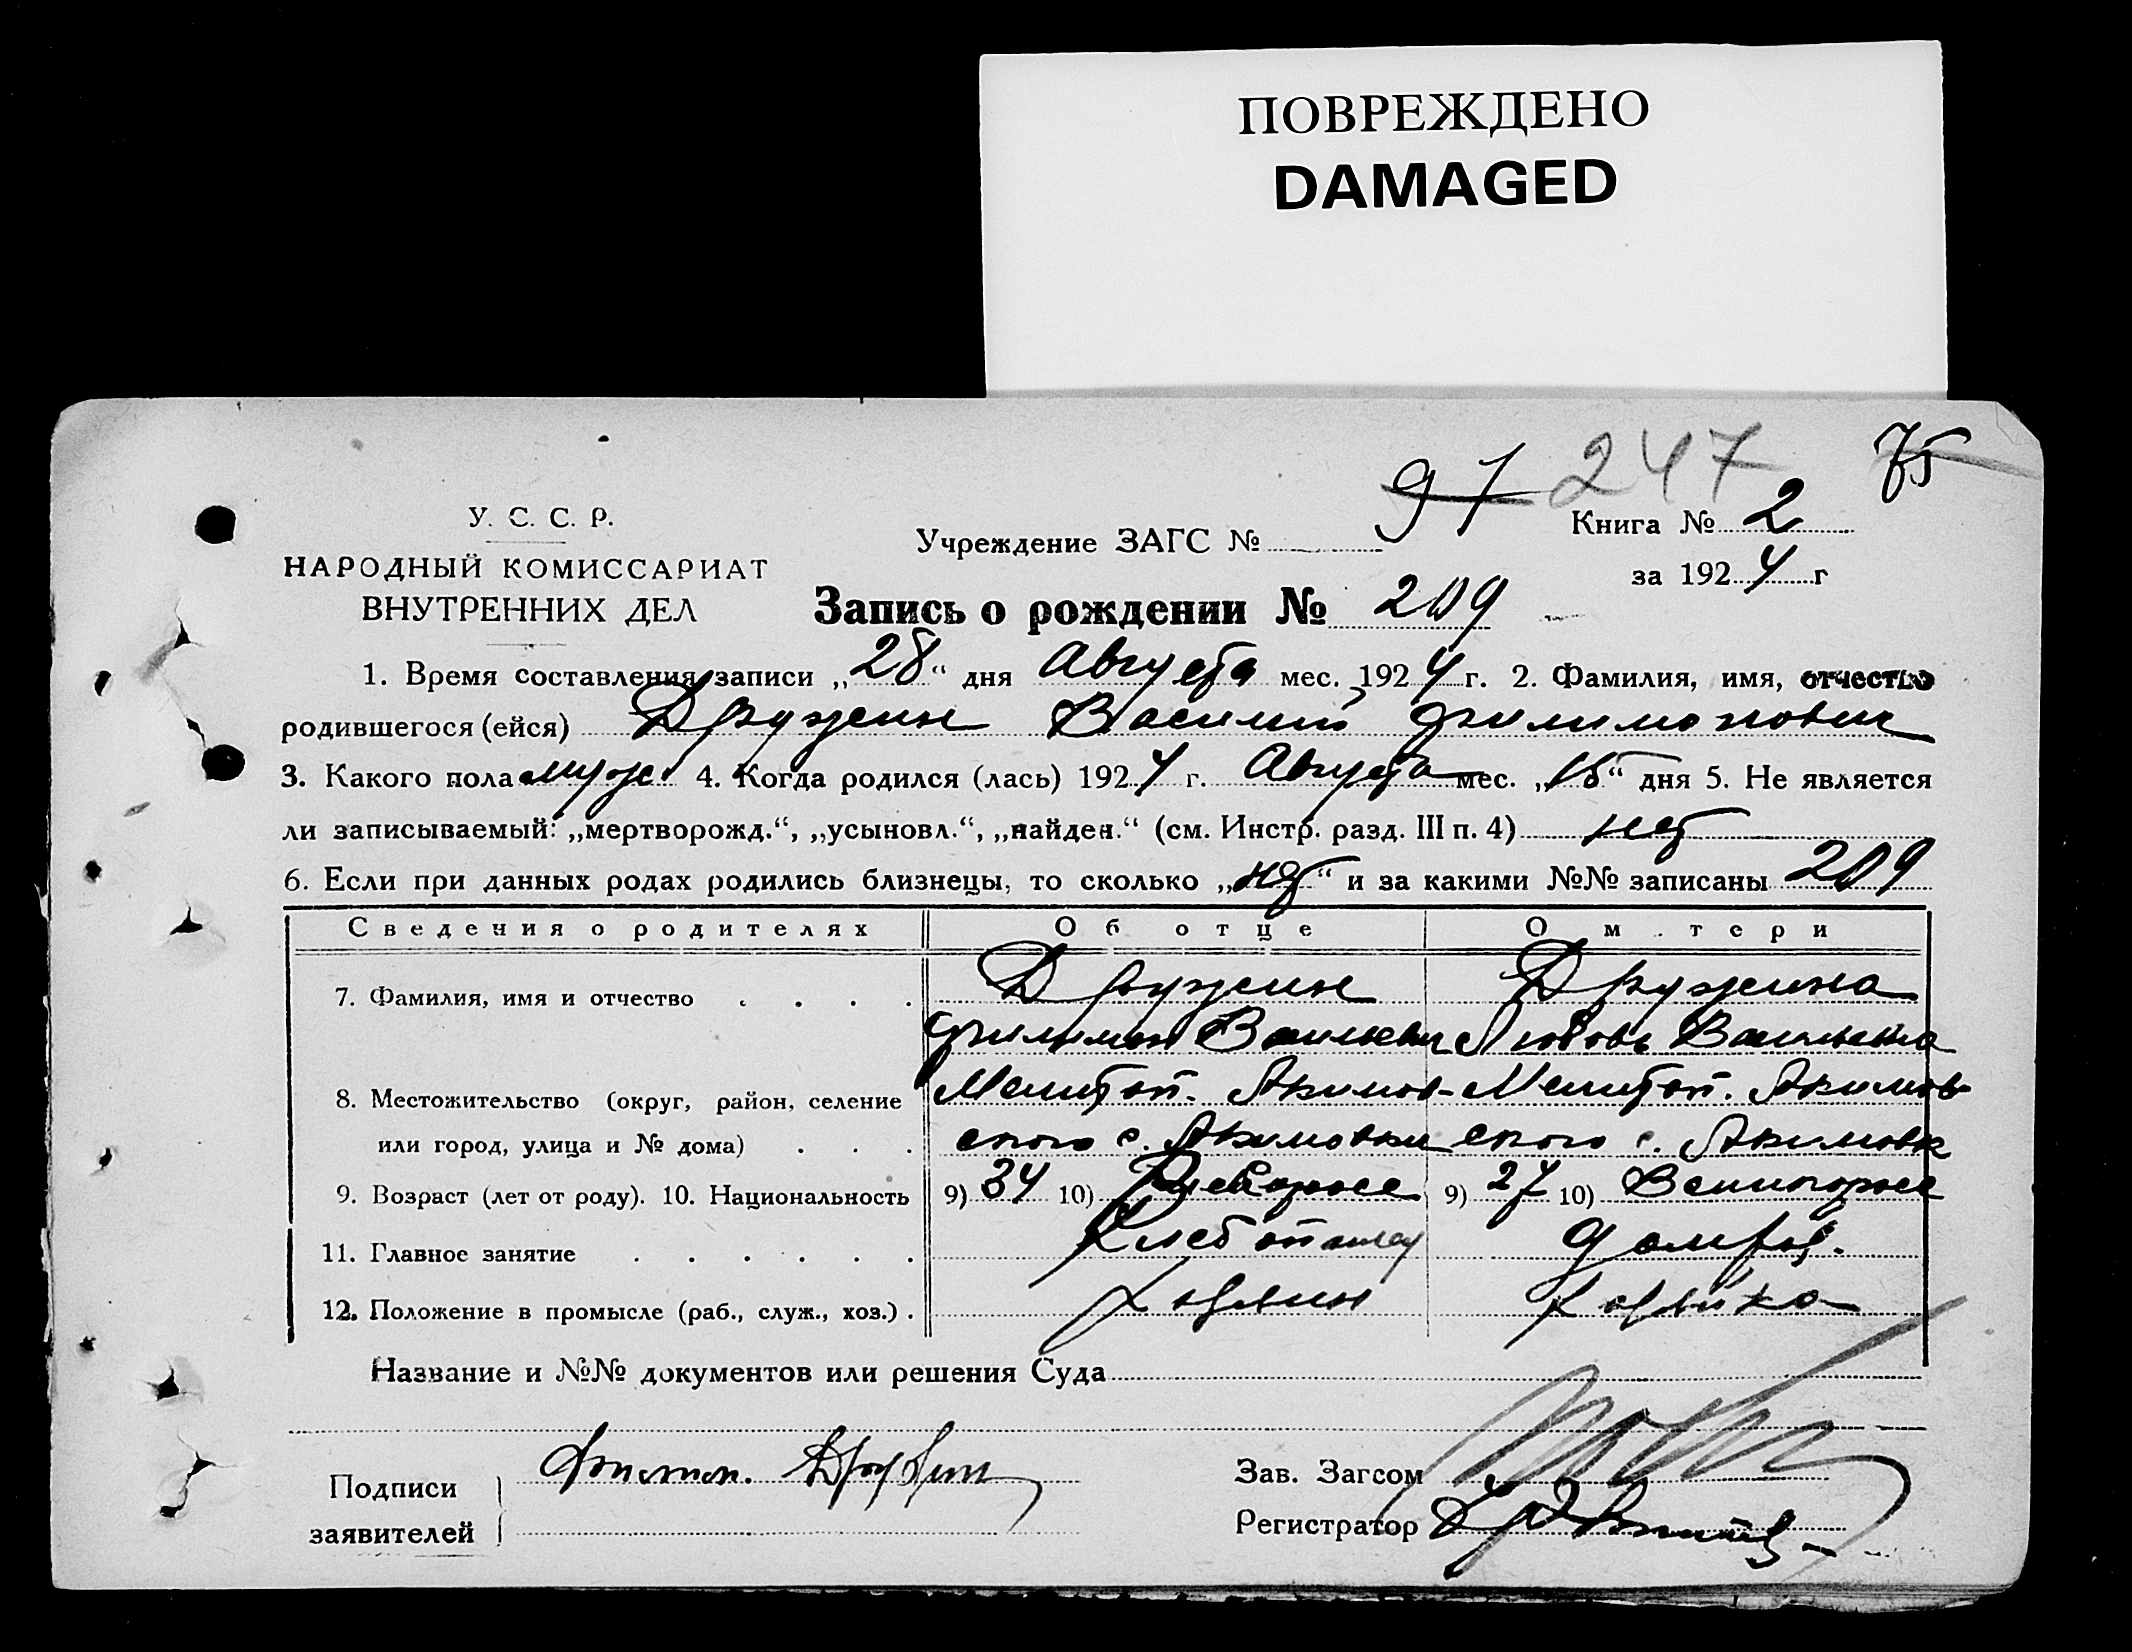 ПОВРЕЖДЕНО
DAMAGED
97 247 75
У. С. С. Р.
НАРОДНЫЙ КОМИССАРИАТ
ВНУТРЕННИХ ДЕЛ
Учреждение ЗАГС №
Книга № 2
за 1924 г
Запись о рождении № 209
1. Время составления записи „28“ дня Августа мес. 1924 г. 2. Фамилия, имя, отчество
родившегося (ейся) Дружин Василий Филимонович
3. Какого пола муж. 4. Когда родился (лась) 1924 г. Августа мес. „15“ дня 5. Не является
ли записываемый: „мертворожд.“, „усыновл.“, „найден.“ (см. Инстр. разд. III п. 4) нет
6. Если при данных родах родились близнецы, то сколько „нет“ и за какими №№ записаны 209
Сведения о родителях Об отце О м тери
7. Фамилия, имя и отчество . . . . Дружин Дружина
Филимон Васильевич Любовь Васильевна
8. Местожительство (округ, район, селение Мелитоп. Акимов- Мелитоп. Акимов-
или город, улица и № дома) . . . ского с. Акимовки ского с. Акимовк
9. Возраст (лет от роду). 10. Национальность 9) 34 10) 9) 27 10) Великоросс
11. Главное занятие . . . . . . Хлебопашец домхоз.
12. Положение в промысле (раб., служ., хоз.) . Хозяин Хозяйка
Название и №№ документов или решения Суда
Подписи
заявителей
Дружин
Зав. Загсом
Регистратор